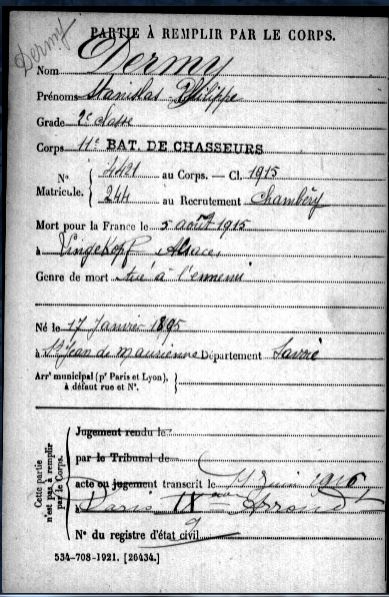 Dermy
PARTIE À REMPLIR PAR LE CORPS.
Nom Dermy
Prénoms Stanislas Philippe
Grade 2e classe
Corps 11e BAT. DE CHASSEURS
No 4421 au Corps. — Cl. 1915
Matricule. 244 au Recrutement Chambéry
Mort pour la France le 5 août 1915
à Lingekopf Alsace
Genre de mort tué à l'ennemi
Né le 17 Janvier 1895
à St Jean de Maurienne Département Savoie
Arrt municipal (pr Paris et Lyon),
à défaut rue et No.
Cette partie
n'est pas à remplir
par le Corps.
Jugement rendu le
par le Tribunal de
acte ou jugement transcrit le Juin 1916
à Paris IX Arrond
No du registre d'état civil
534-708-1921. [26434.]